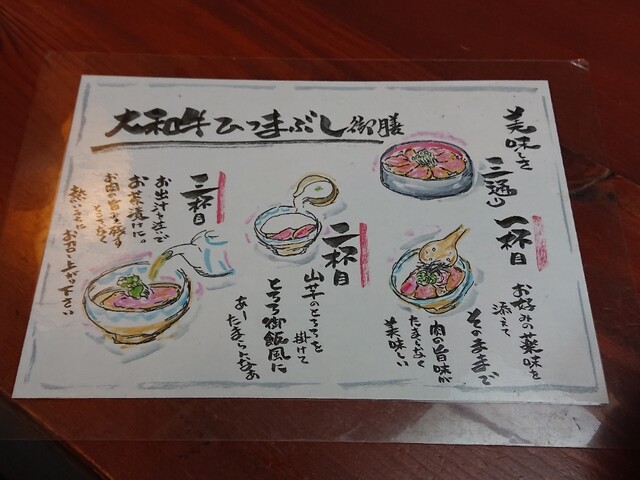 大和牛ひつまぶし御膳
美味しき
三通り
一杯目
お好みの薬味を
添えて
そのままで
肉の旨味が
たまらなく
美味しい
二杯目
山芋のとろろを
掛けて
とろろ御飯風に
あーたまらんなぁ
三杯目
お出汁を注いで
お茶漬けに。
お肉の旨さを
熱いうちに
お召し上がり下さい